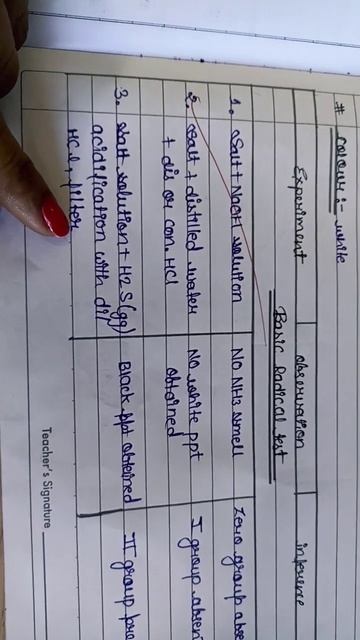 # Colour :- white
Basic Radical test
Experiment observation inference
1. Salt + NaOH solution No NH3 smell Zero group abse
2. Salt + distilled water No white ppt I group absen
+ dil or con. HCl obtained
3. Salt solution + H2S (g) Black ppt obtained II group pre
acidification with dil
HCl + filter
Teacher's Signature